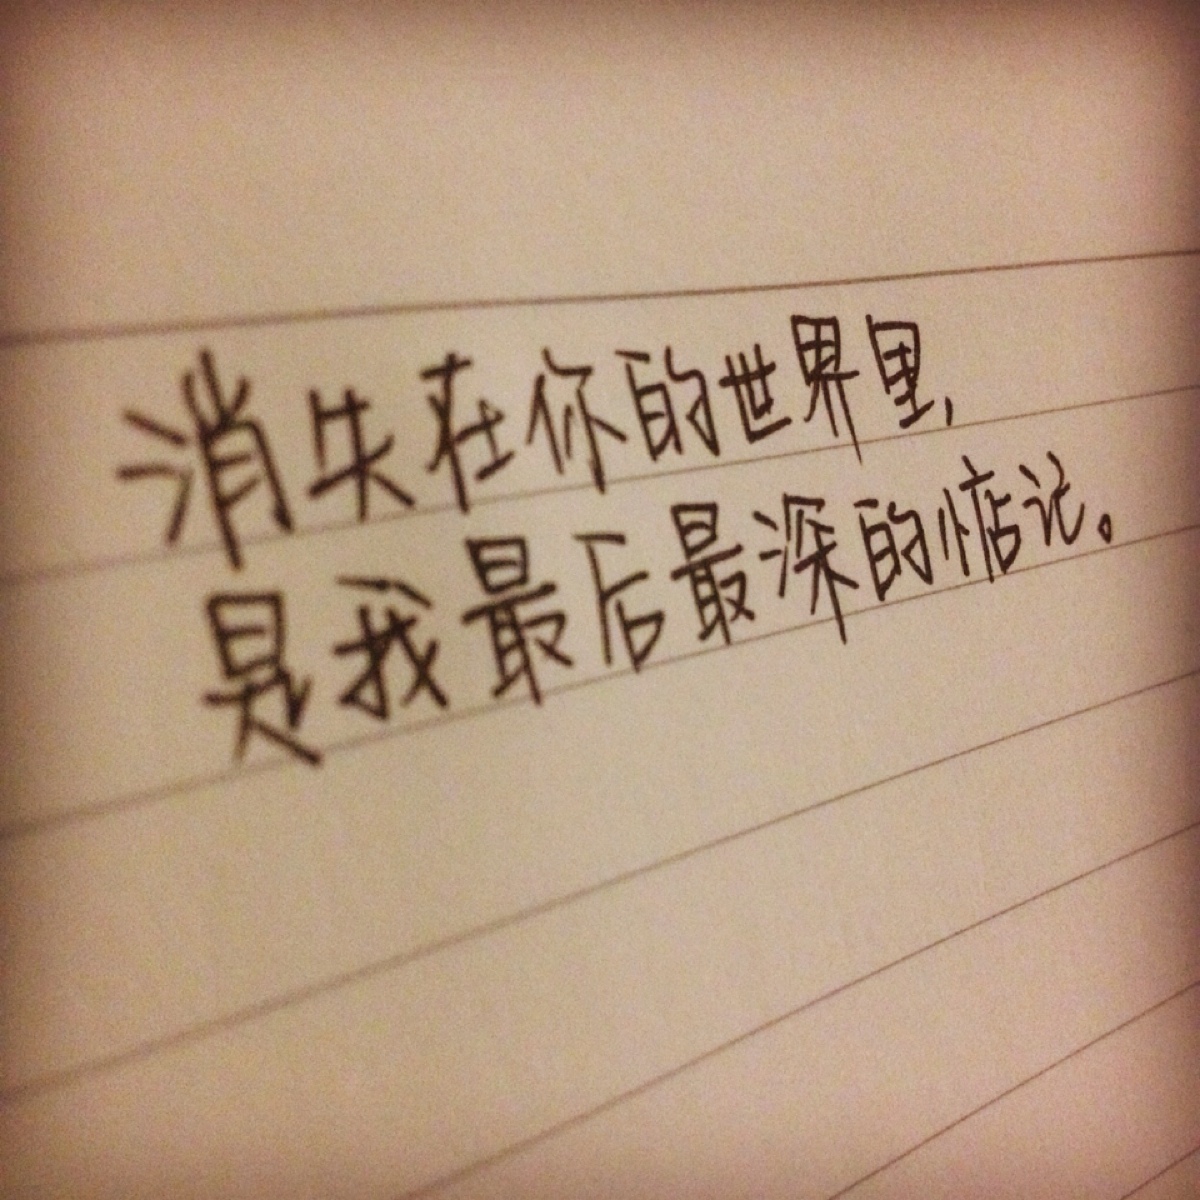 消失在你的世界里,
是我最后最深的惦记。